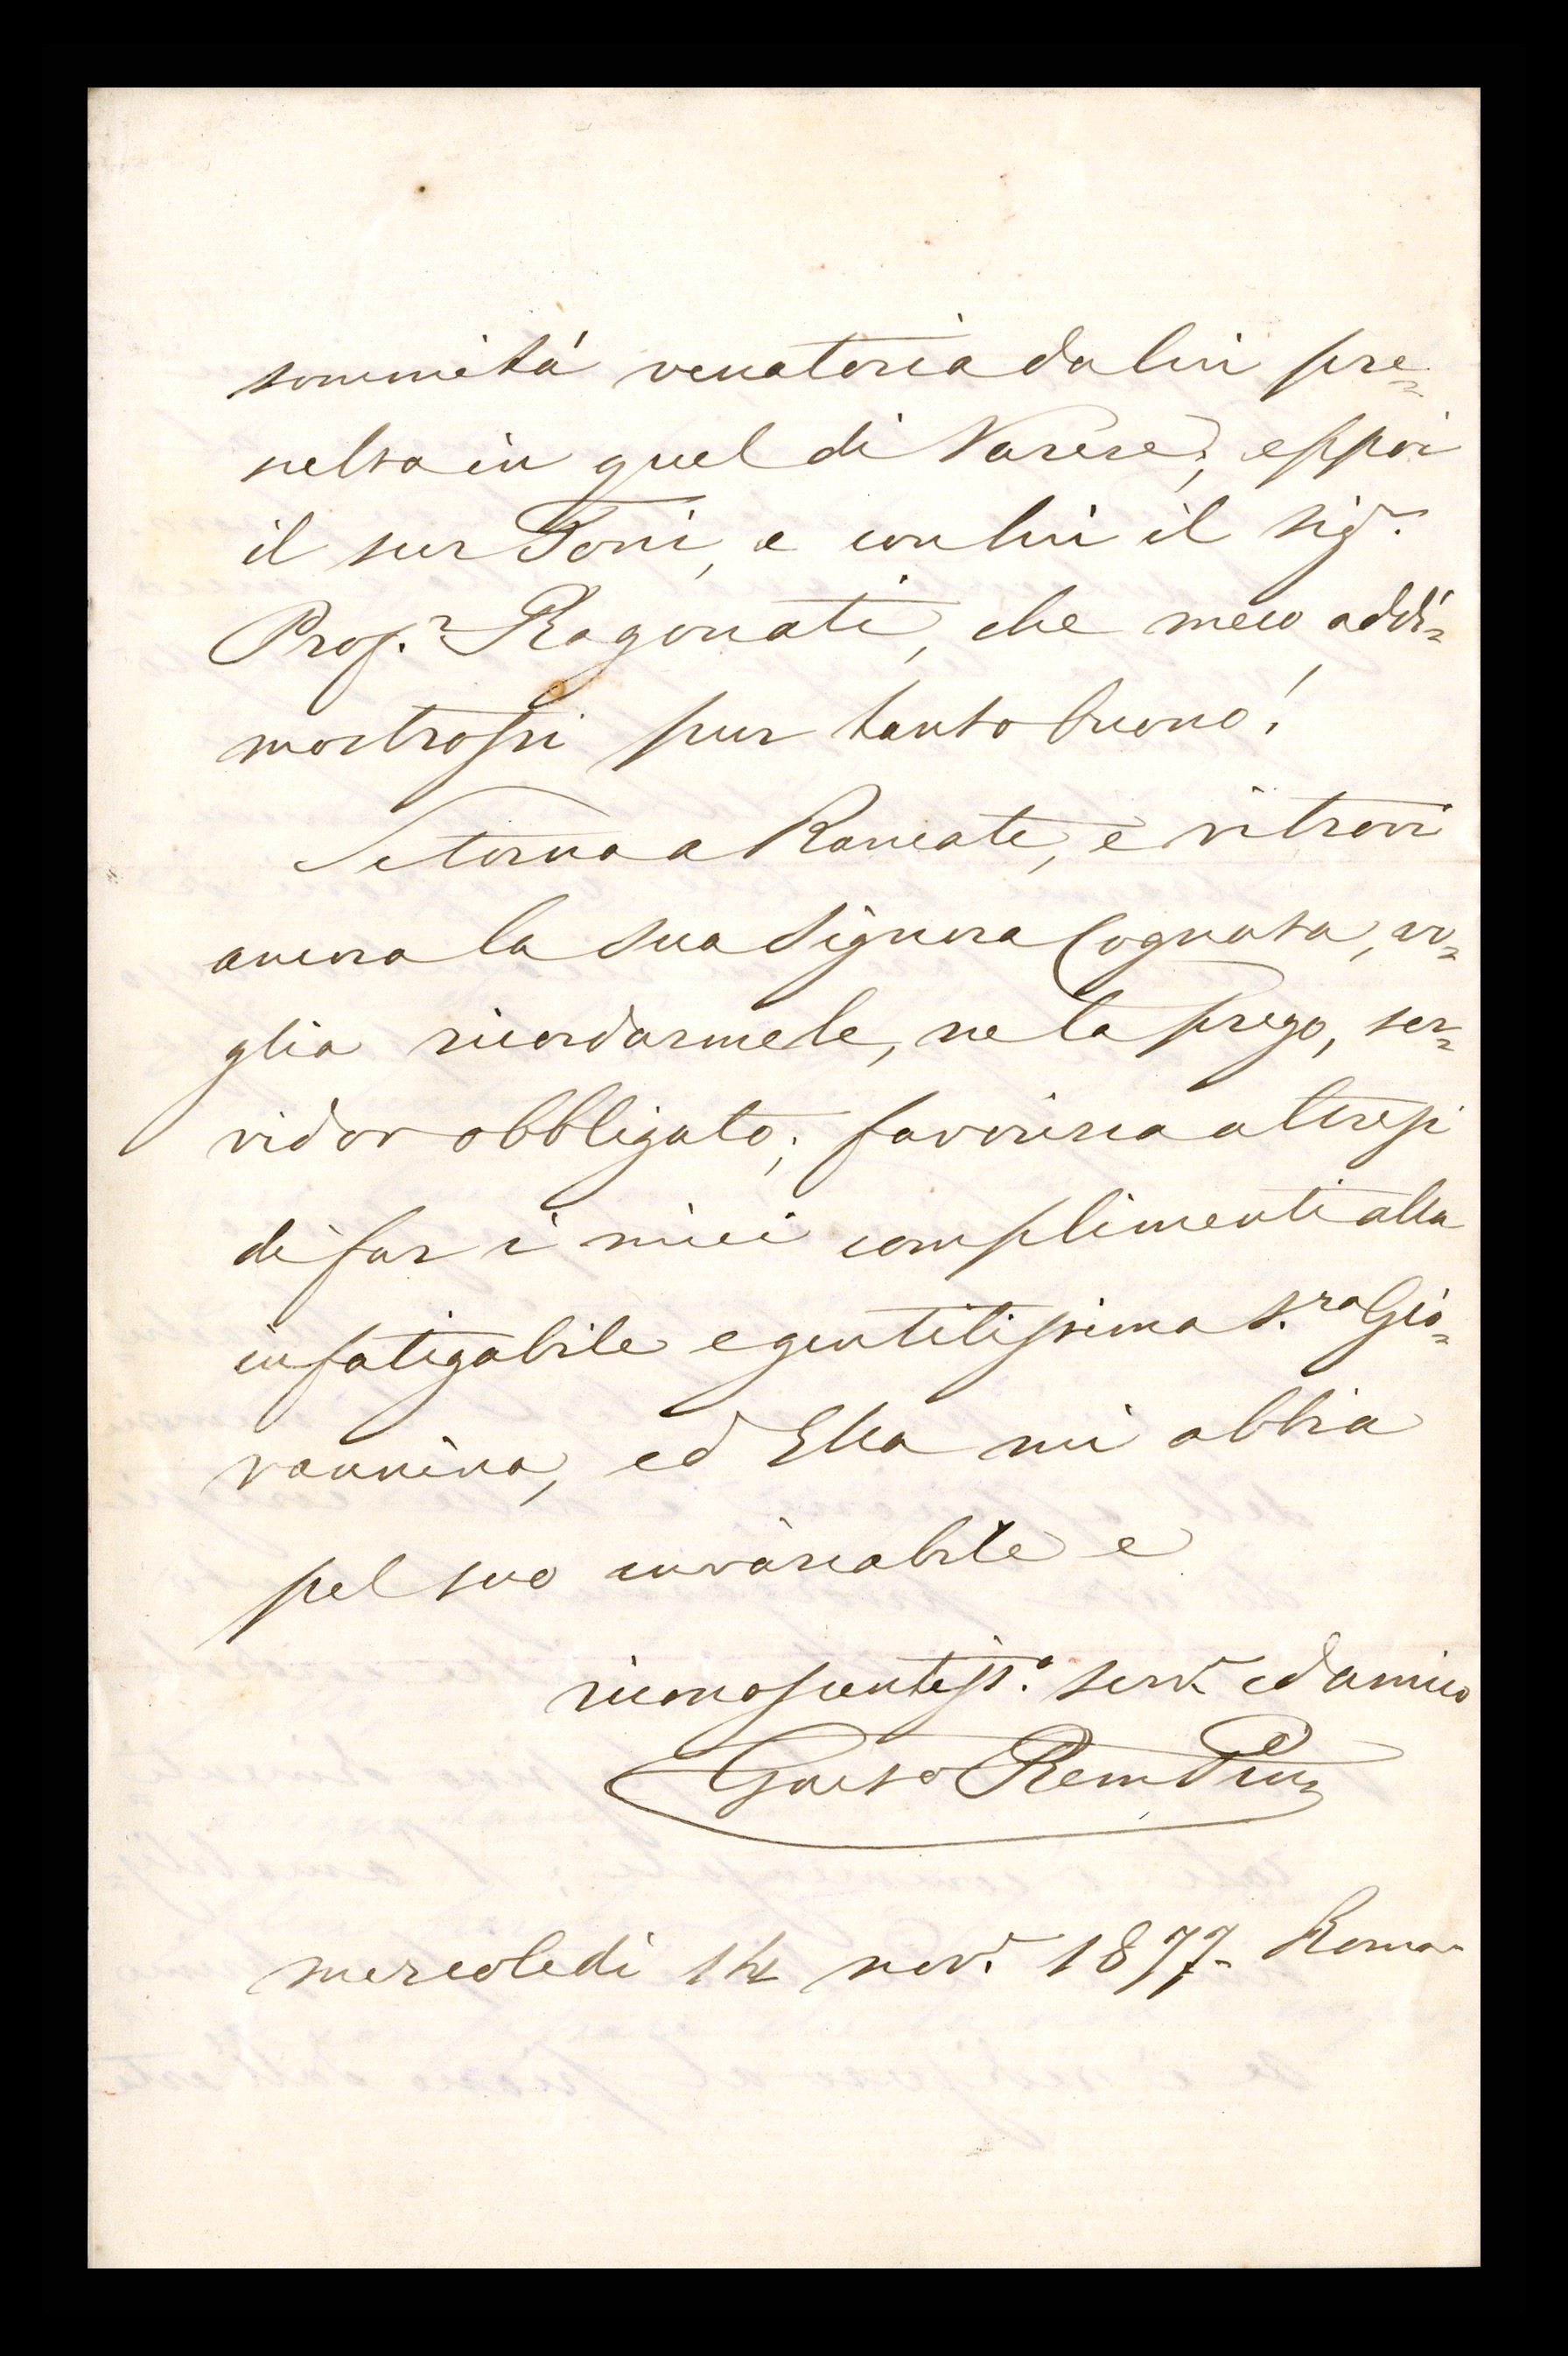 sommitá venatoria da lui pre=
scelta in quel di Varese; eppoi
il sur Toni, e con lui il sig.r
Prof.r Ragonati, che meco addi=
mostrossi pur tanto buono!
Se torna a Rancate, e ritrovi
ancora la sua Signora Cognata, vo=
glia ricordarmele, ne la prego, ser=
vidor obbligato; favorisca altresi
di far i miei complimenti alla
infatigabile e gentilissima S.ra Gio=
vannina, ed Ella mi abbia
pel suo invariabile e
riconoscentiss.o serv.r ed amico
Remo
mercoledi 14 nov.e 1877. Roma.